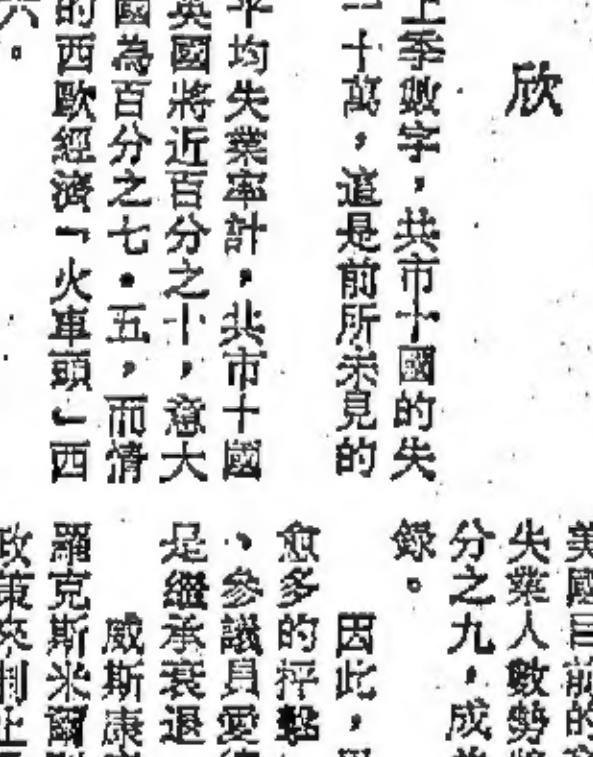 欣
上季數字，共市十國的失
二十萬，這是前所未見的
平均失業率計，共市十國
英國將近百分之十，意大
國為百分之七・五，而情
的西歐經濟「火車頭」西
六。
美國目前的
失業人數勢將
分之九，成
錄。
因此，
愈多的抨擊
、參議員愛德
是繼承衰退
威斯康
羅克斯米爾
政策來制止